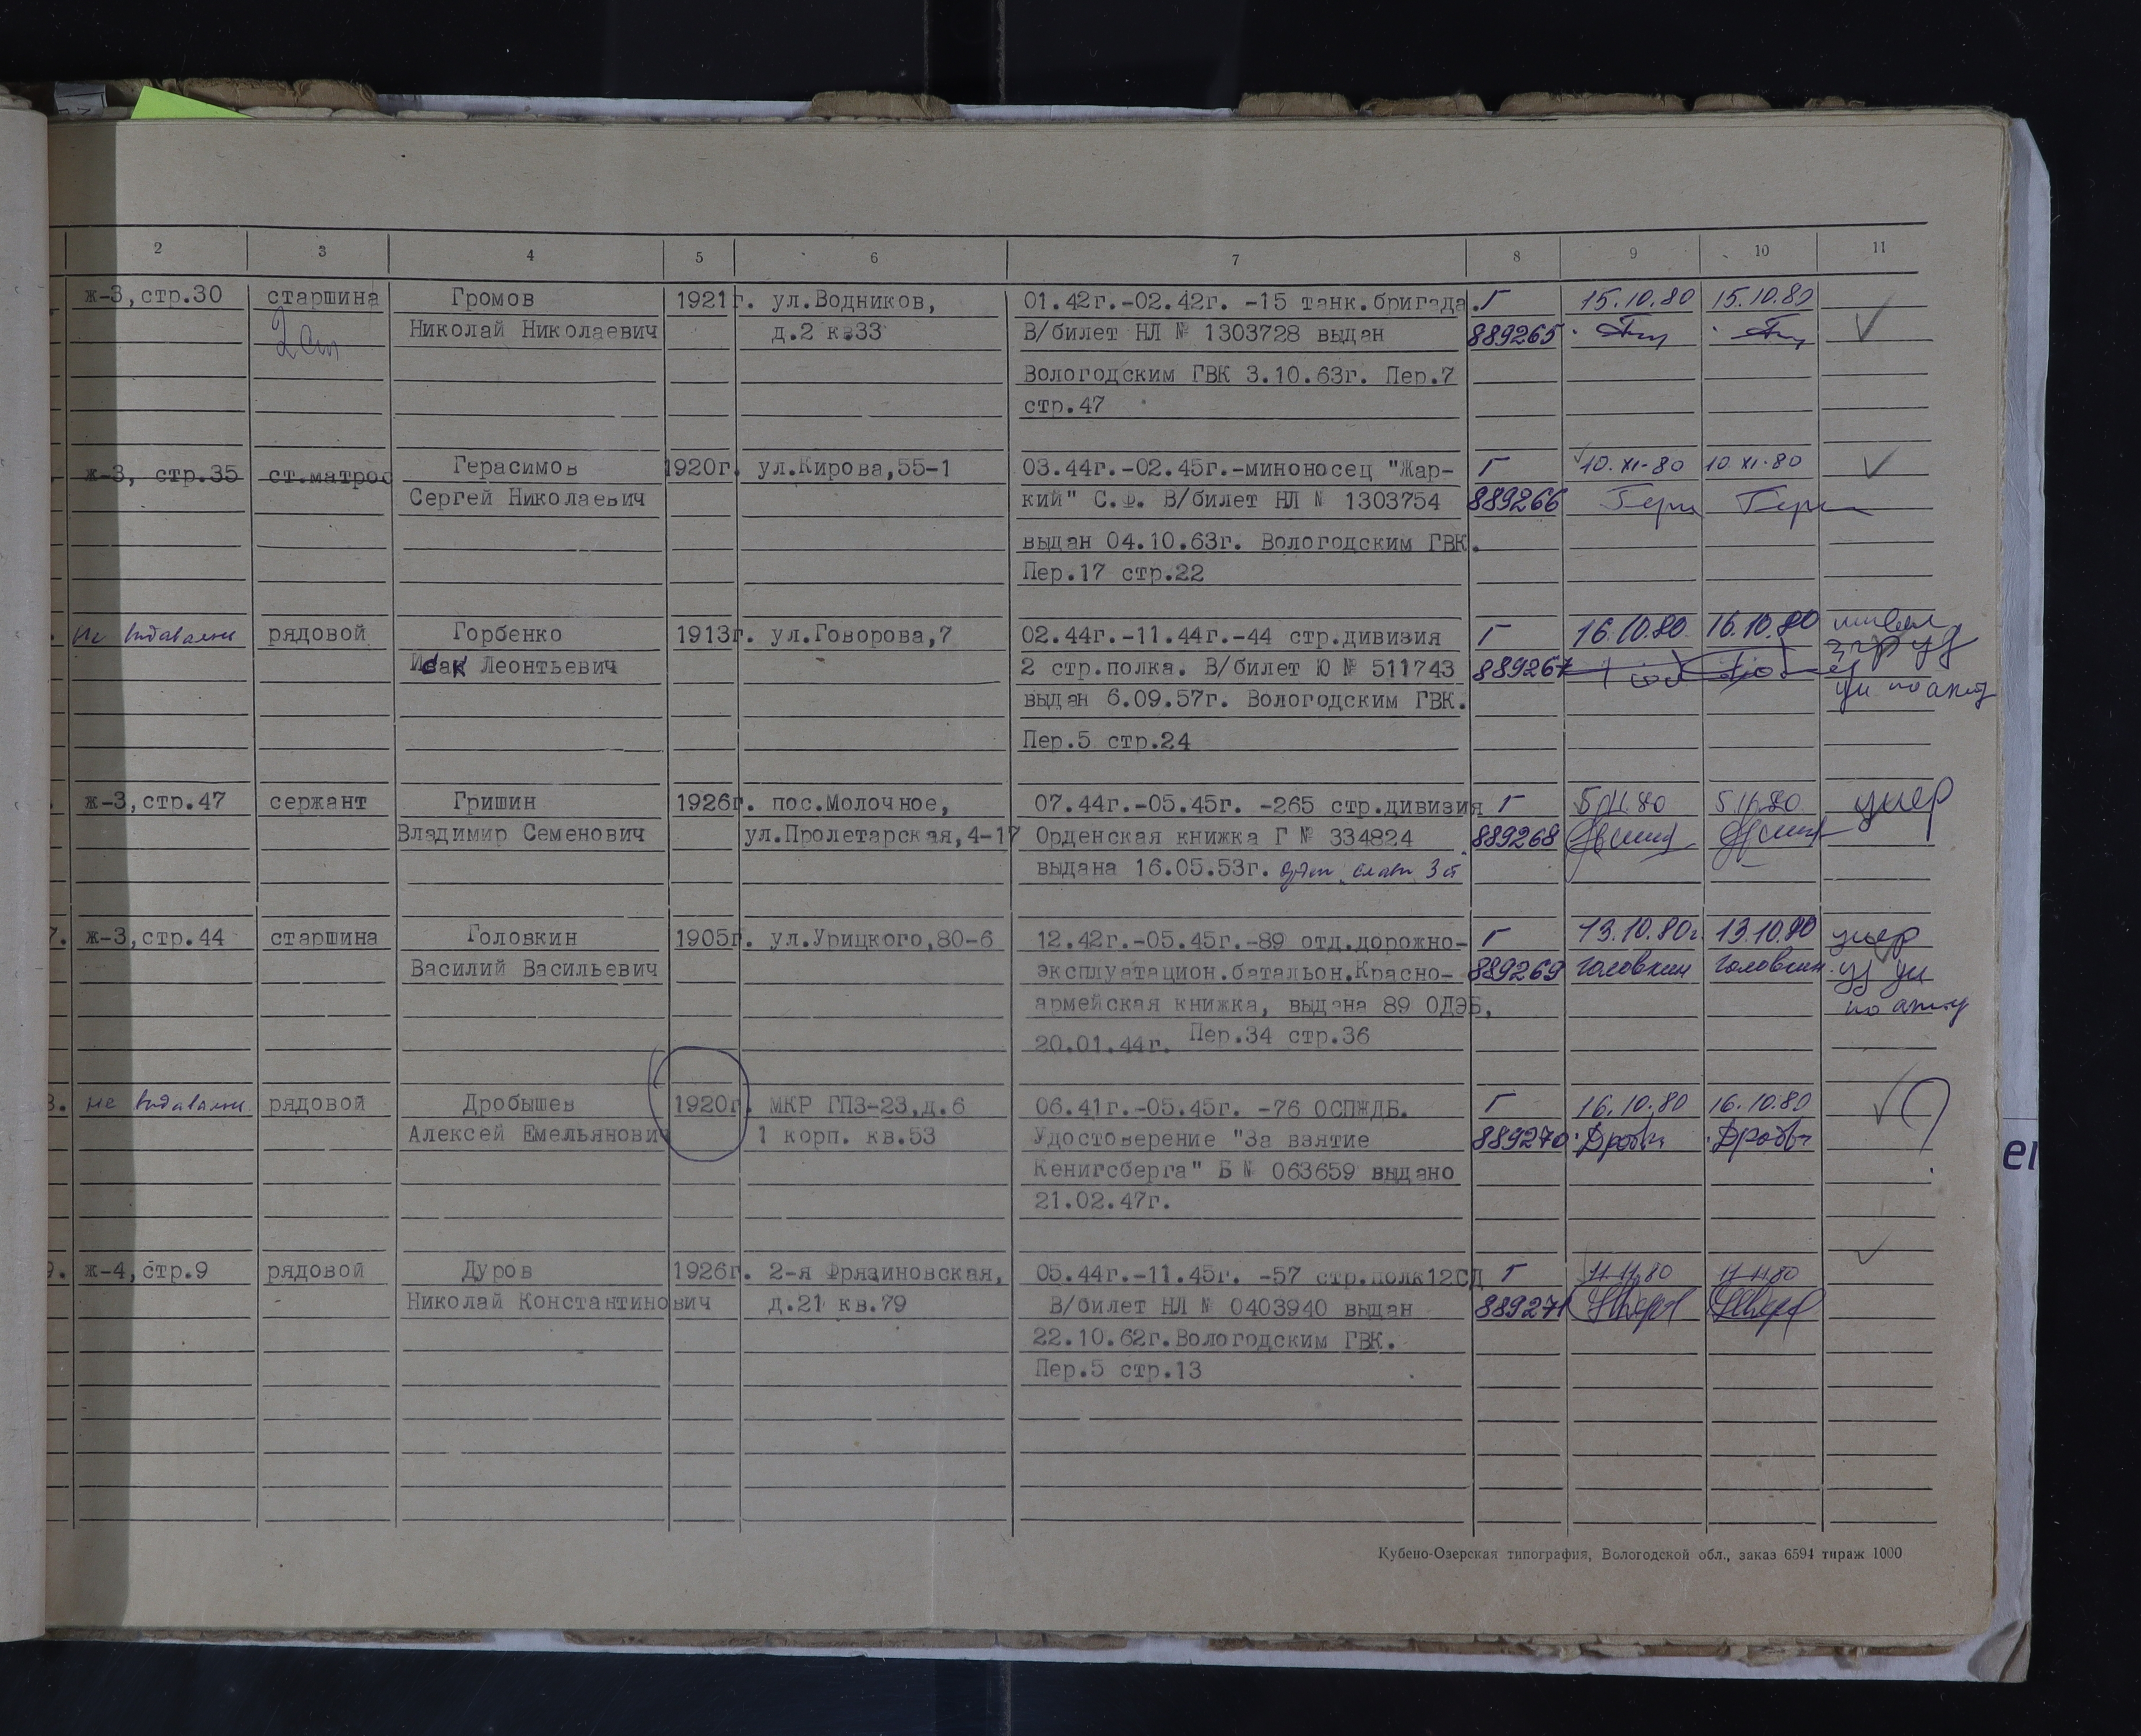 2 3 4 5 6 7 8 9 10 11
ж-3,стр.30 старшина Громов 1921г. ул.Водников, 01.42г.-02.42г. -15 танк.бригада. Г 15.10.80 15.10.80
Николай Николаевич д.2 кв33 В/билет НЛ № 1303728 выдан 889265
Вологодским ГВК 3.10.63г. Пер.7
стр.47
ж-3, стр.35 ст.матрос Герасимов 1920г. ул.Кирова,55-1 03.44г.-02.45г.-миноносец "Жар- Г 10.XI-80 10.XI-80
Сергей Николаевич кий" С.Ф. В/билет НЛ № 1303754 889266
выдан 04.10.63г. Вологодским ГВК.
Пер.17 стр.22
не выдавали рядовой Горбенко 1913г. ул.Говорова,7 02.44г.-11.44г.-44 стр.дивизия Г 16.10.80. 16.10.80
Исак Леонтьевич 2 стр.полка. В/билет Ю № 511743 889267
выдан 6.09.57г. Вологодским ГВК.
Пер.5 стр.24
ж-3,стр.47 сержант Гришин 1926г. пос.Молочное, 07.44г.-05.45г. -265 стр.дивизия Г 5.11.80 5.11.80 умер
Владимир Семенович ул.Пролетарская,4-17 Орденская книжка Г № 334824 889268
выдана 16.05.53г. орден славы 3 ст
7. ж-3,стр.44 старшина Головкин 1905г. ул.Урицкого,80-6 12.42г.-05.45г.-89 отд.дорожно- Г 13.10.80г 13.10.80 умер
Василий Васильевич эксплуатацион.батальон.Красно- 889269 Головкин Головкин
армейская книжка, выдана 89 ОДЭБ,
20.01.44г. Пер.34 стр.36
8. не выдавали рядовой Дробышев 1920г. МКР ГПЗ-23,д.6 06.41г.-05.45г. -76 ОСПЖДБ. Г 16.10.80 16.10.80 ?
Алексей Емельянович 1 корп. кв.53 Удостоверение "За взятие 889270
Кенигсберга" Б № 063659 выдано
21.02.47г.
9. ж-4,стр.9 рядовой Дуров 1926г. 2-я Фрязиновская, 05.44г.-11.45г. -57 стр.полк12СД Г 11.11.80 11.11.80
Николай Константинович д.21 кв.79 В/билет НЛ № 0403940 выдан 889271
22.10.62г.Вологодским ГВК.
Пер.5 стр.13
Кубено-Озерская типография, Вологодской обл., заказ 6594 тираж 1000